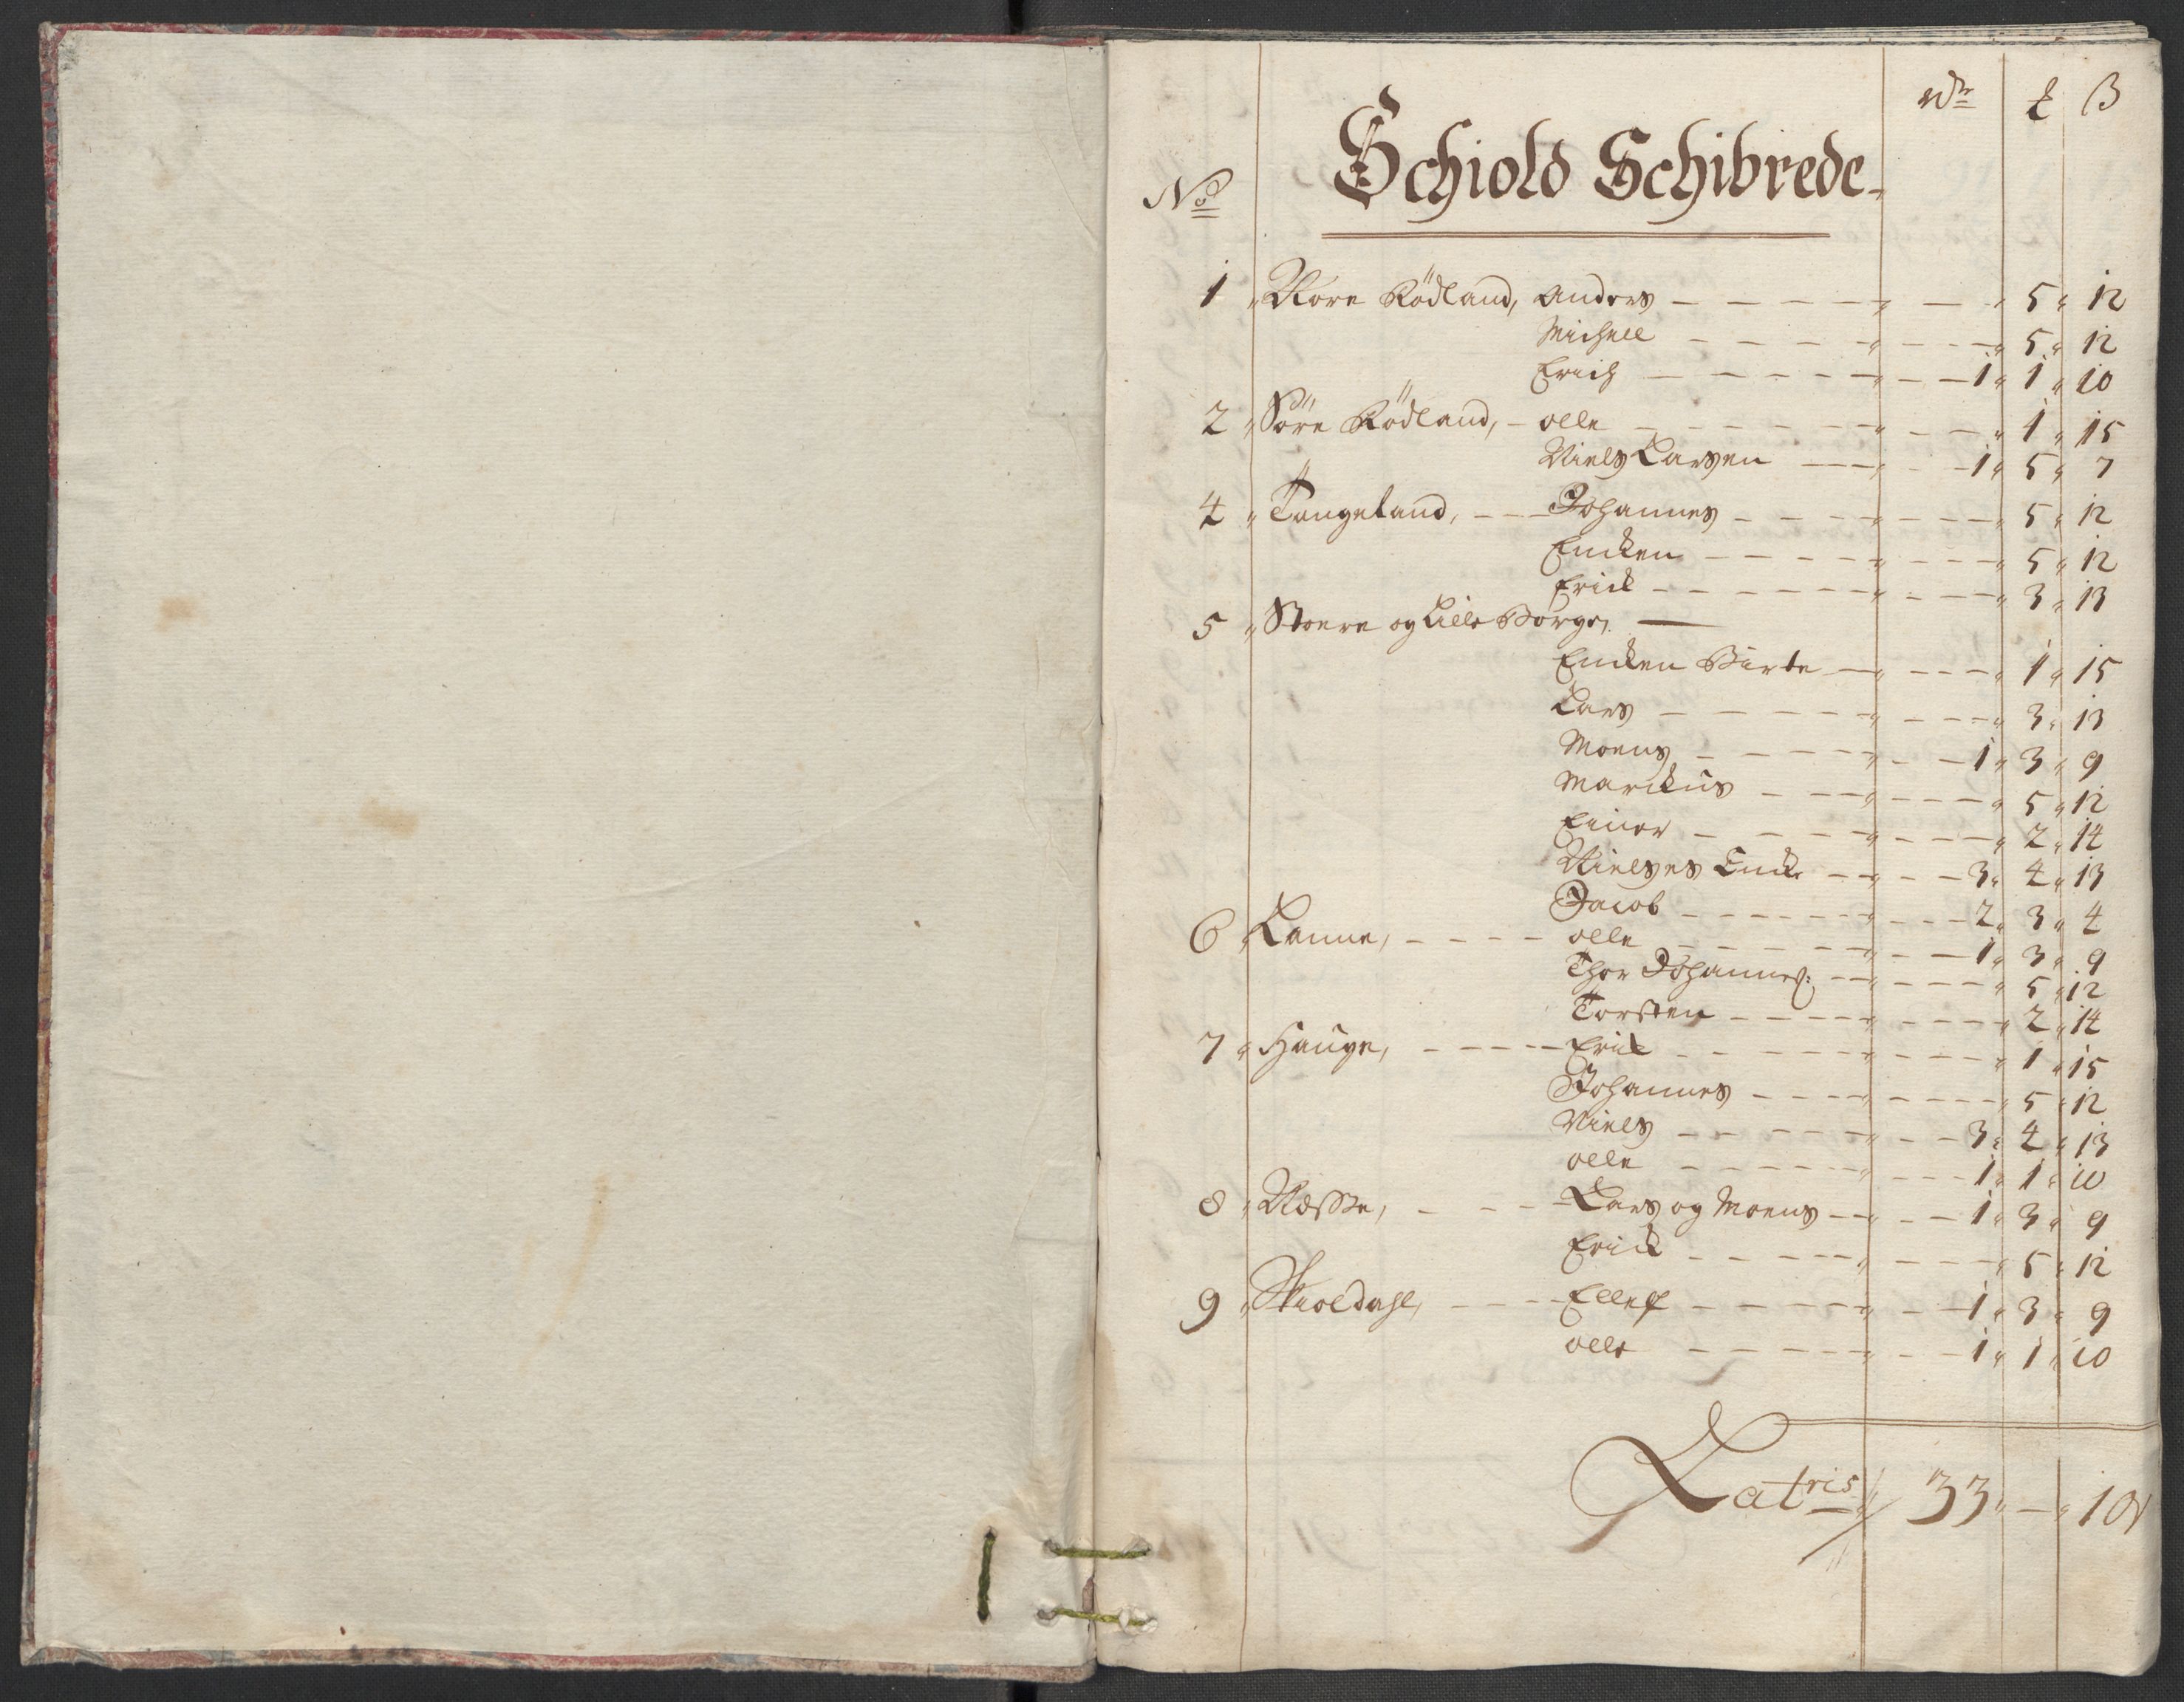 Wdr £ ß
No Schiold Schibrede
1 Nore Rödland, Anders - - - 5 12
Michell - - - 5 12
Erich - - - 1 1 10
2 Söre Rödland, - olle - - - 1 15
Niels Larsen - - - 1 5 7
4 Tangeland, - - Johannes - - - 5 12
Encken - - - 5 12
Erick - - - 3 13
5 Stoere og Lille Børge,
Encken Birte - - - 1 15
Lars - - - 3 13
Moens - - - 1 3 9
Marckus - - - 5 12
Einer - - - 2 14
Nielses Enck: - - - 3 4 13
Jacob - - - 2 3 4
6 Lanne, - - - olle - - - 1 3 9
Thor Johannes: - - - 5 12
Torsten - - - 2 14
7 Hauge, - - - Erick - - - 1 15
Johannes - - - 5 12
Niels - - - 3 4 13
olle - - - 1 1 10
8 Næsse, - - - Lars og Moens - - - 1 3 9
Erick - - - 5 12
9 Skioldahl, - - - Ellef - - - 1 3 9
olle - - - 1 1 10
Latris 33 - 10